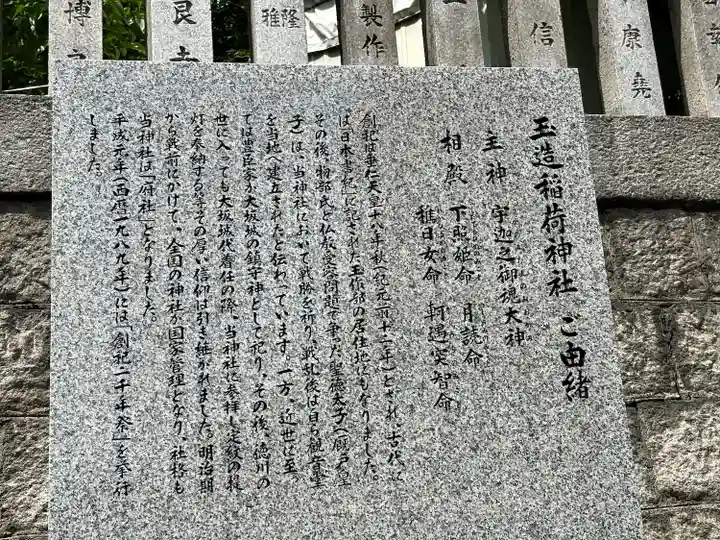 玉造稲荷神社 ご由緒
主神 宇迦之御魂大神
相殿 下照姫命 月読命
稚日女命 軻遇突智命
創祀は垂仁天皇十八年秋(紀元前十二年)とされ、古代に
は「日本書紀」に記された玉作部の居住地にもなりました。
その後、物部氏と仏教受容問題で争った聖徳太子(厩戸皇
子)は、当神社において戦勝を祈り、戦乱後は自ら観音堂
を当地へ建立されたと伝わっています。一方、近世に至っ
ては豊臣家が大坂城の鎮守神として祀り、その後、徳川の
世に入っても大坂城代着任の際、当神社に参拝し定紋の提
灯を奉納する等その厚い信仰は引き継がれました。明治期
から戦前にかけて、全国の神社が国家管理となり、社格も
当神社は「府社」となりました。
平成元年(西暦一九八九年)には「創祀二千年祭」を斎行
しました。
博
良
雅 隆
製作
信
康 堯